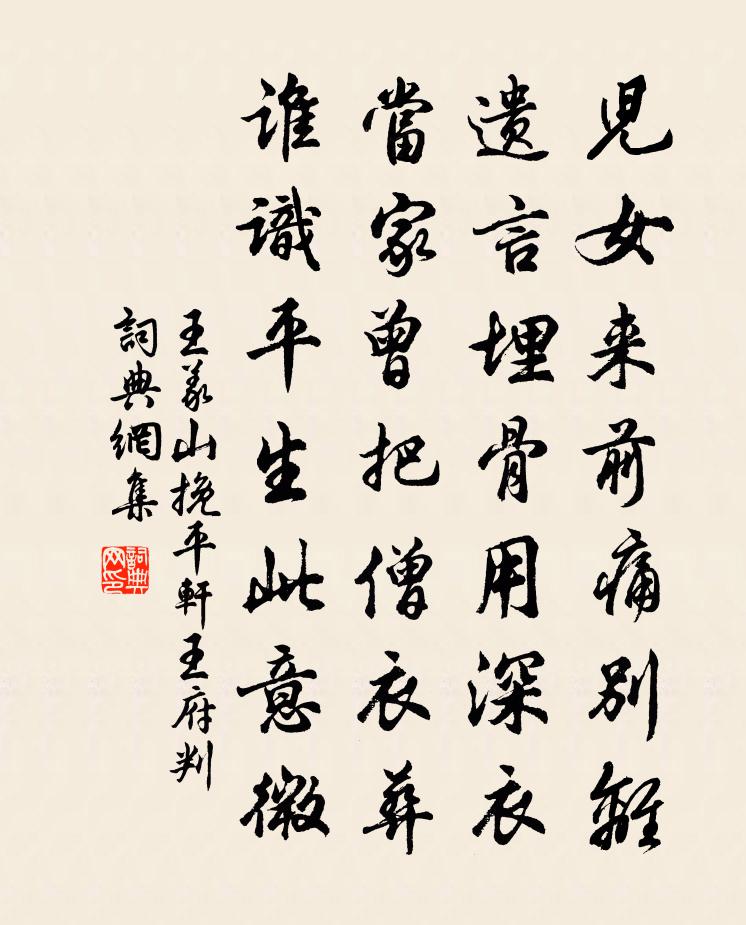 兒女来前痛別離
遺言埋骨用深衣
當家曾把僧衣葬
誰識平生此意微
王義山挽平軒王府判
詞典網集
詞典网印